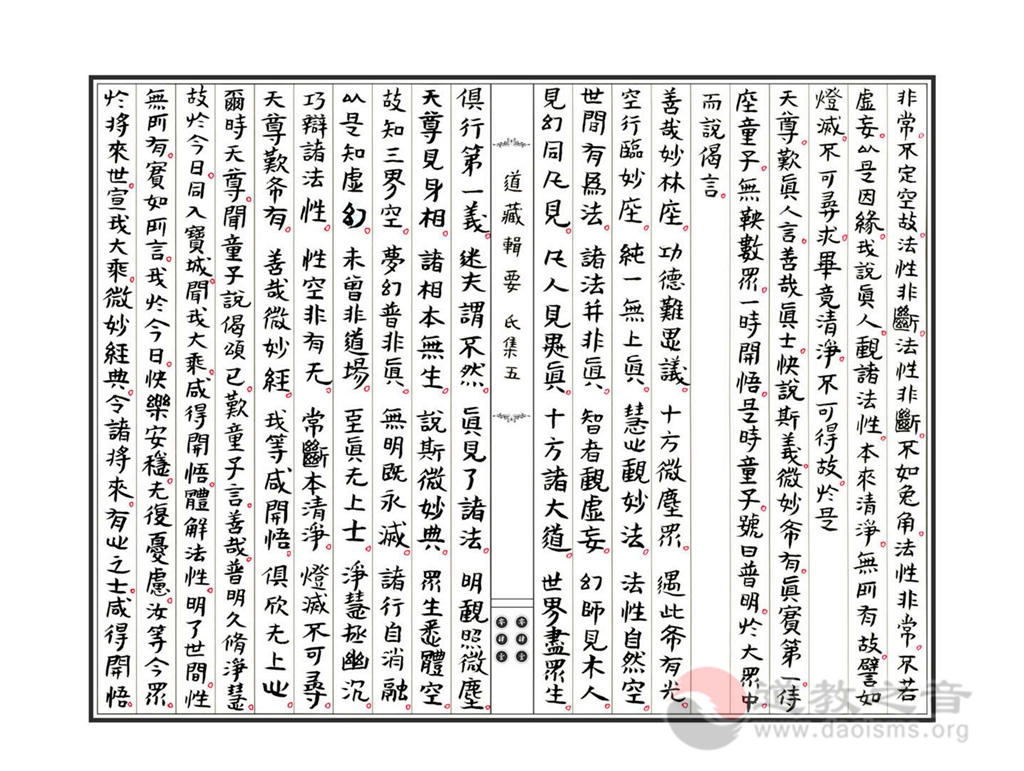 非常。不定空故。法性非斷。法性非斷。不如兔角。法性非常。不若
虛妄。以是因緣。我說眞人。觀諸法性。本來清淨。無所有故。譬如
燈滅。不可尋求。畢竟清淨。不可得故。於是
天尊。歎眞人言。善哉眞士。快說斯義。微妙希有。眞實第一。侍
座童子。無鞅數眾。一時開悟。是時童子。號曰普明。於大眾中。
而說偈言。
善哉妙林座。 功德難思議。 十方微塵眾。 遇此希有光。
空行臨妙座。 純一無上眞。 慧心觀妙法。 法性自然空。
世間有爲法。 諸法并非眞。 智者觀虛妄。 幻師見木人。
見幻同凡見。 凡人見愚眞。 十方諸大道。 世界盡眾生。
道藏輯要 氐集五
俱行第一義。 迷夫謂不然。 眞見了諸法。 明觀照微塵。
天尊見身相。 諸相本無生。 說斯微妙典。 眾生悉體空。
故知三界空。 夢幻普非眞。 無明既永滅。 諸行自消融。
以是知虛幻。 未曾非道場。 至眞无上士。 淨慧極幽沉。
巧辯諸法性。 性空非有无。 常斷本清淨。 燈滅不可尋。
天尊歎希有。 善哉微妙經。 我等咸開悟。 俱欣无上心。
爾時天尊。聞童子說偈頌已。歎童子言。善哉。普明久脩淨慧。
故於今日。同入寶城。聞我大乘。咸得開悟。體解法性。明了世間。性
無所有。實如所言。我於今日。快樂安穩。无復憂慮。汝等今眾。
於將來世。宣我大乘。微妙經典。令諸將來。有心之士。咸得開悟。
道教之音
www.daoisms.org